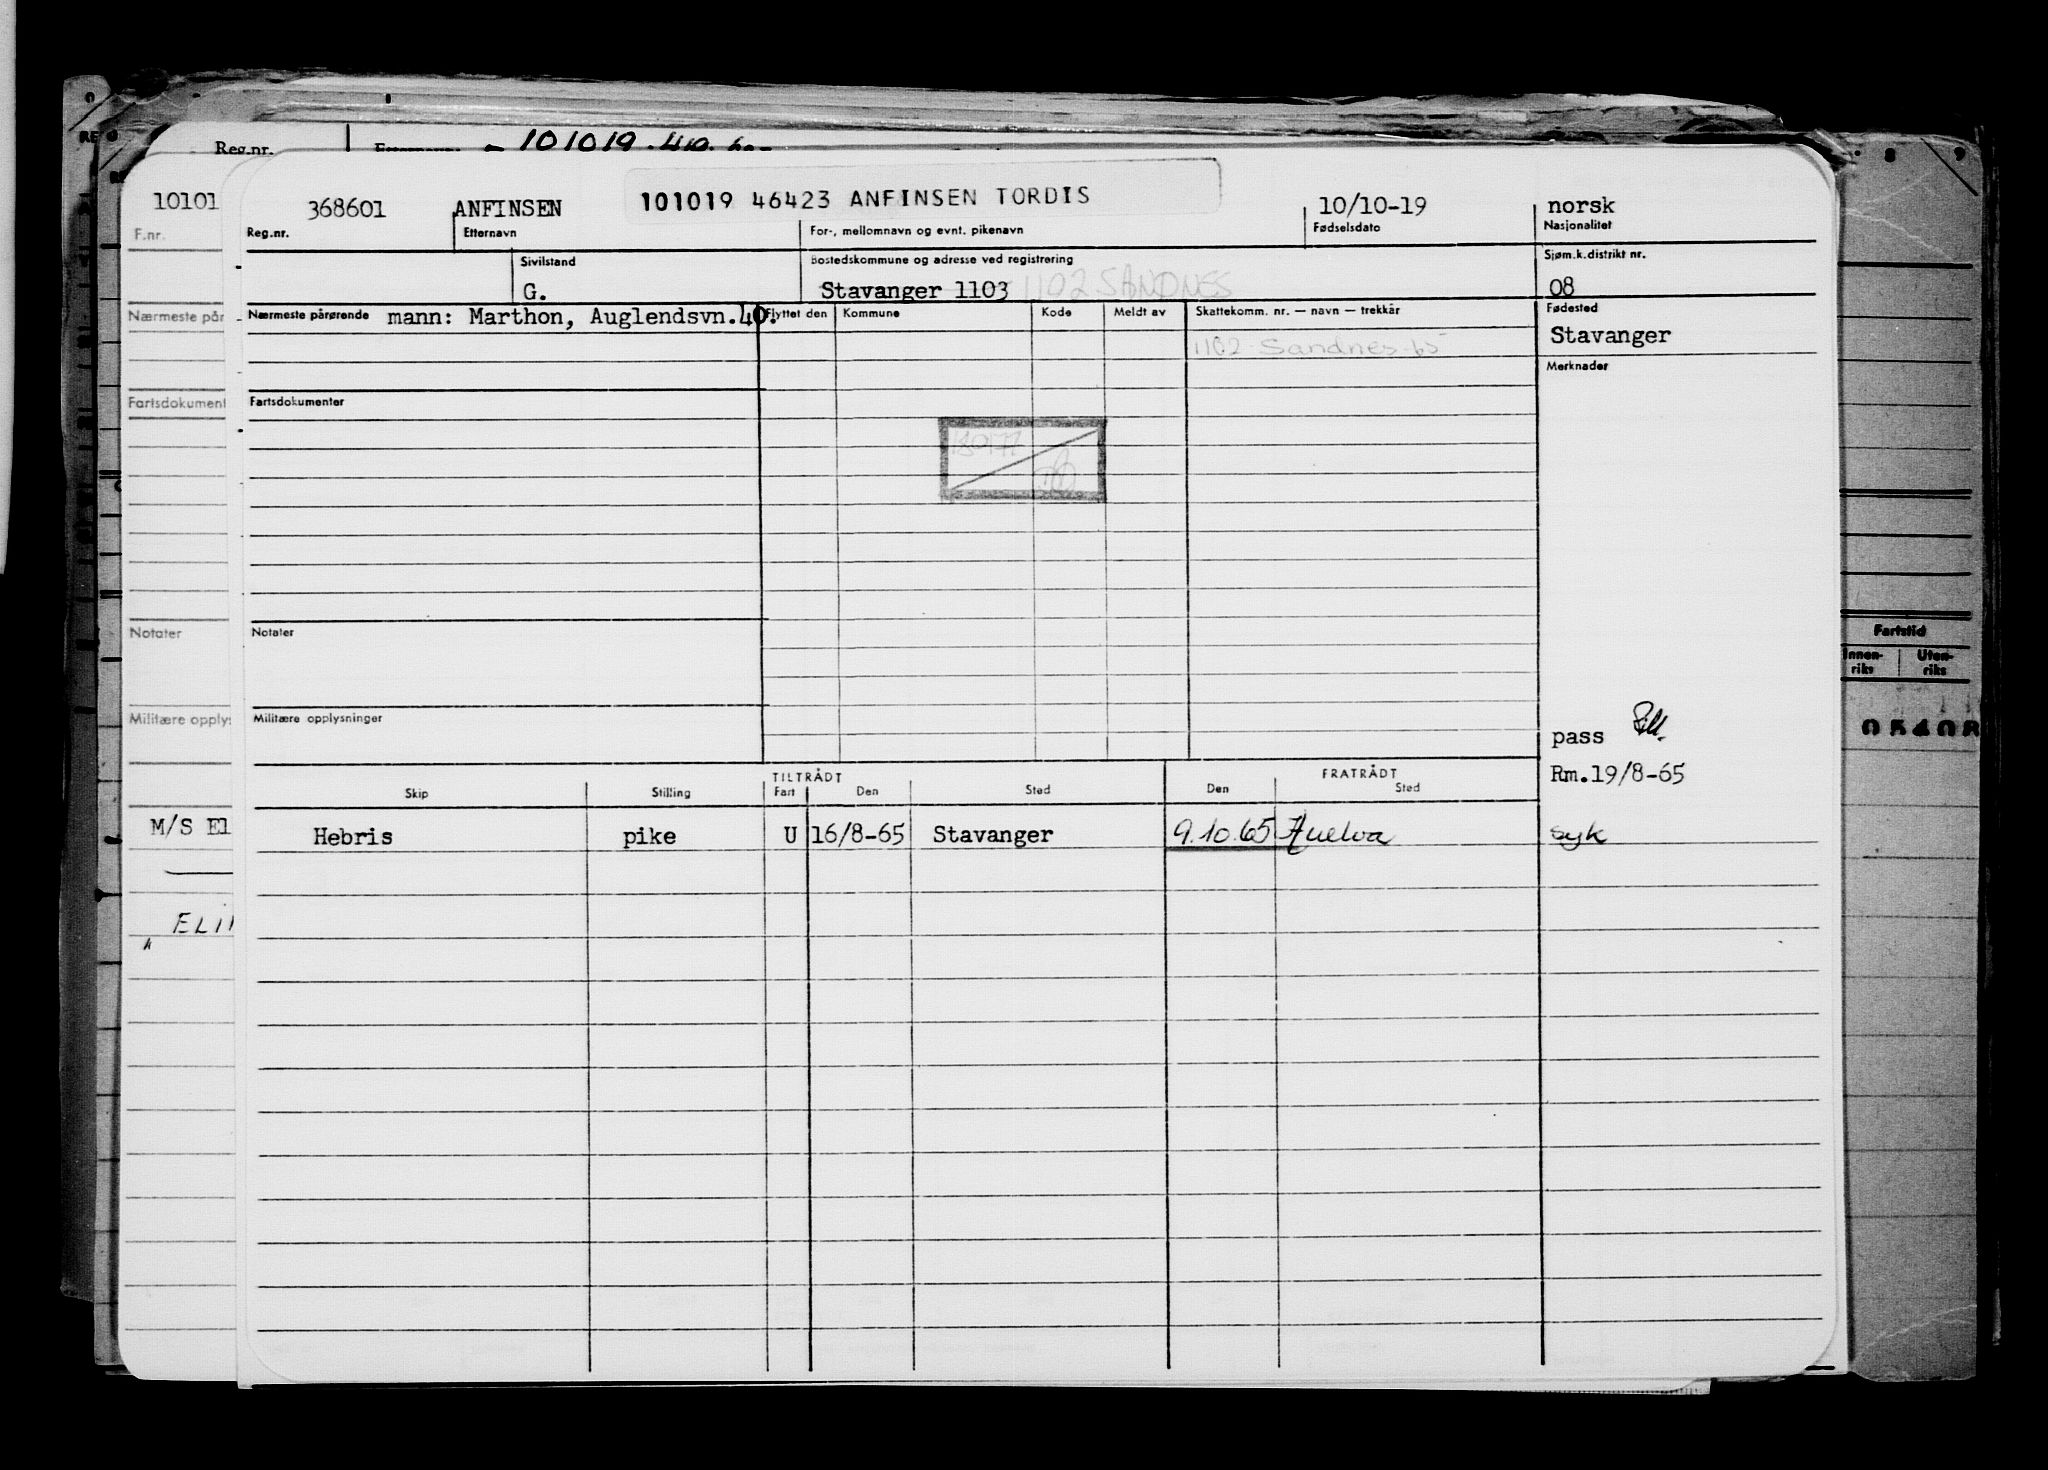 Reg.nr.
101019
10101
F.nr.
Nærmeste pår
Fartsdokument
Notater
Militære opply
M/S El
ELI
368601 ANFINSEN 101019 46423 ANFINSEN TORDIS 10/10-19 norsk
Reg.nr. Etternavn For-, mellomnavn og evnt. pikenavn Fødselsdato Nasjonalitet
Sivilstand Bostedskommune og adresse ved registrering Sjøm.k.distrikt nr.
G. Stavanger 1103 1102 SANDNES 08
Nærmeste pårørende mann: Marthon, Auglendsvn.40. Flyttet den Kommune Kode Meldt av Skattekomm. nr. — navn — trekkår Fødested
1102 Sandnes-65 Stavanger
Merknader
Fartsdokumenter
Notater
Militære opplysninger
pass
Rm.19/8-65
TILTRÅDT FRATRÅDT
Skip Stilling Fart Den Sted Den Sted
Hebris pike U 16/8-65 Stavanger 9.10.65 Huelva syk
8 9
Fartstid
Innen-riks Uten-riks